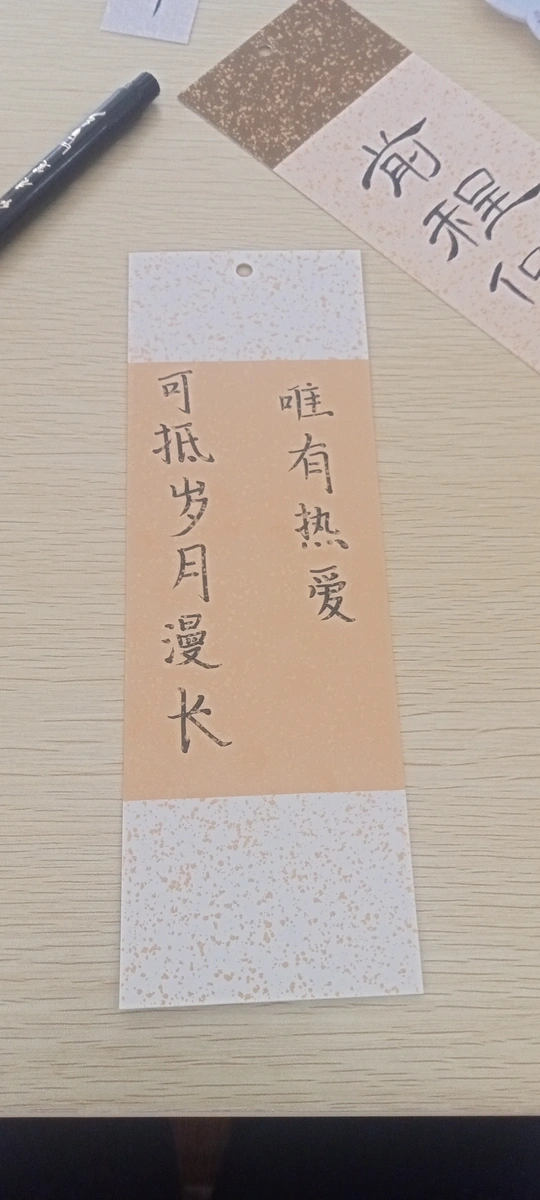 唯有热爱
可抵岁月漫长
前程